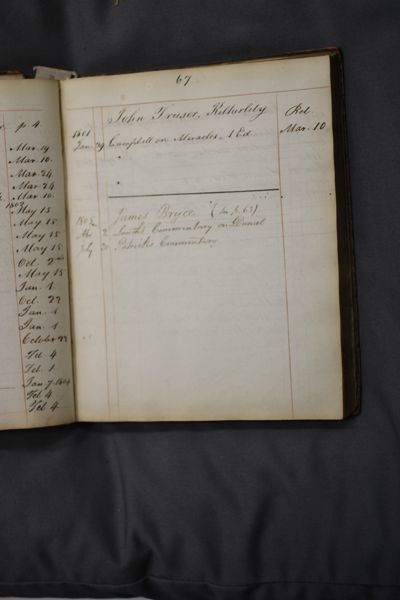 p. 4
Mar. 19
Mar. 10
Mar. 24
Mar. 24
Mar. 10
1802
May 15
May 15
May 15
May 15
Oct. 2nd
May 15
Jan. 1
Oct. 22
Jan. 1
Jan. 1
October 22
Feb. 4
Feb. 1
Jan 7 1804
Feb 4
Feb 4
67
John Fraser, Kiltarlity
Ret.
1801
Jan. 29 Campbell on Miracles, 1 Ed. Mar. 10
James Bryce (See p. 63)
2 Commentary on Daniel
July 20 Commentary